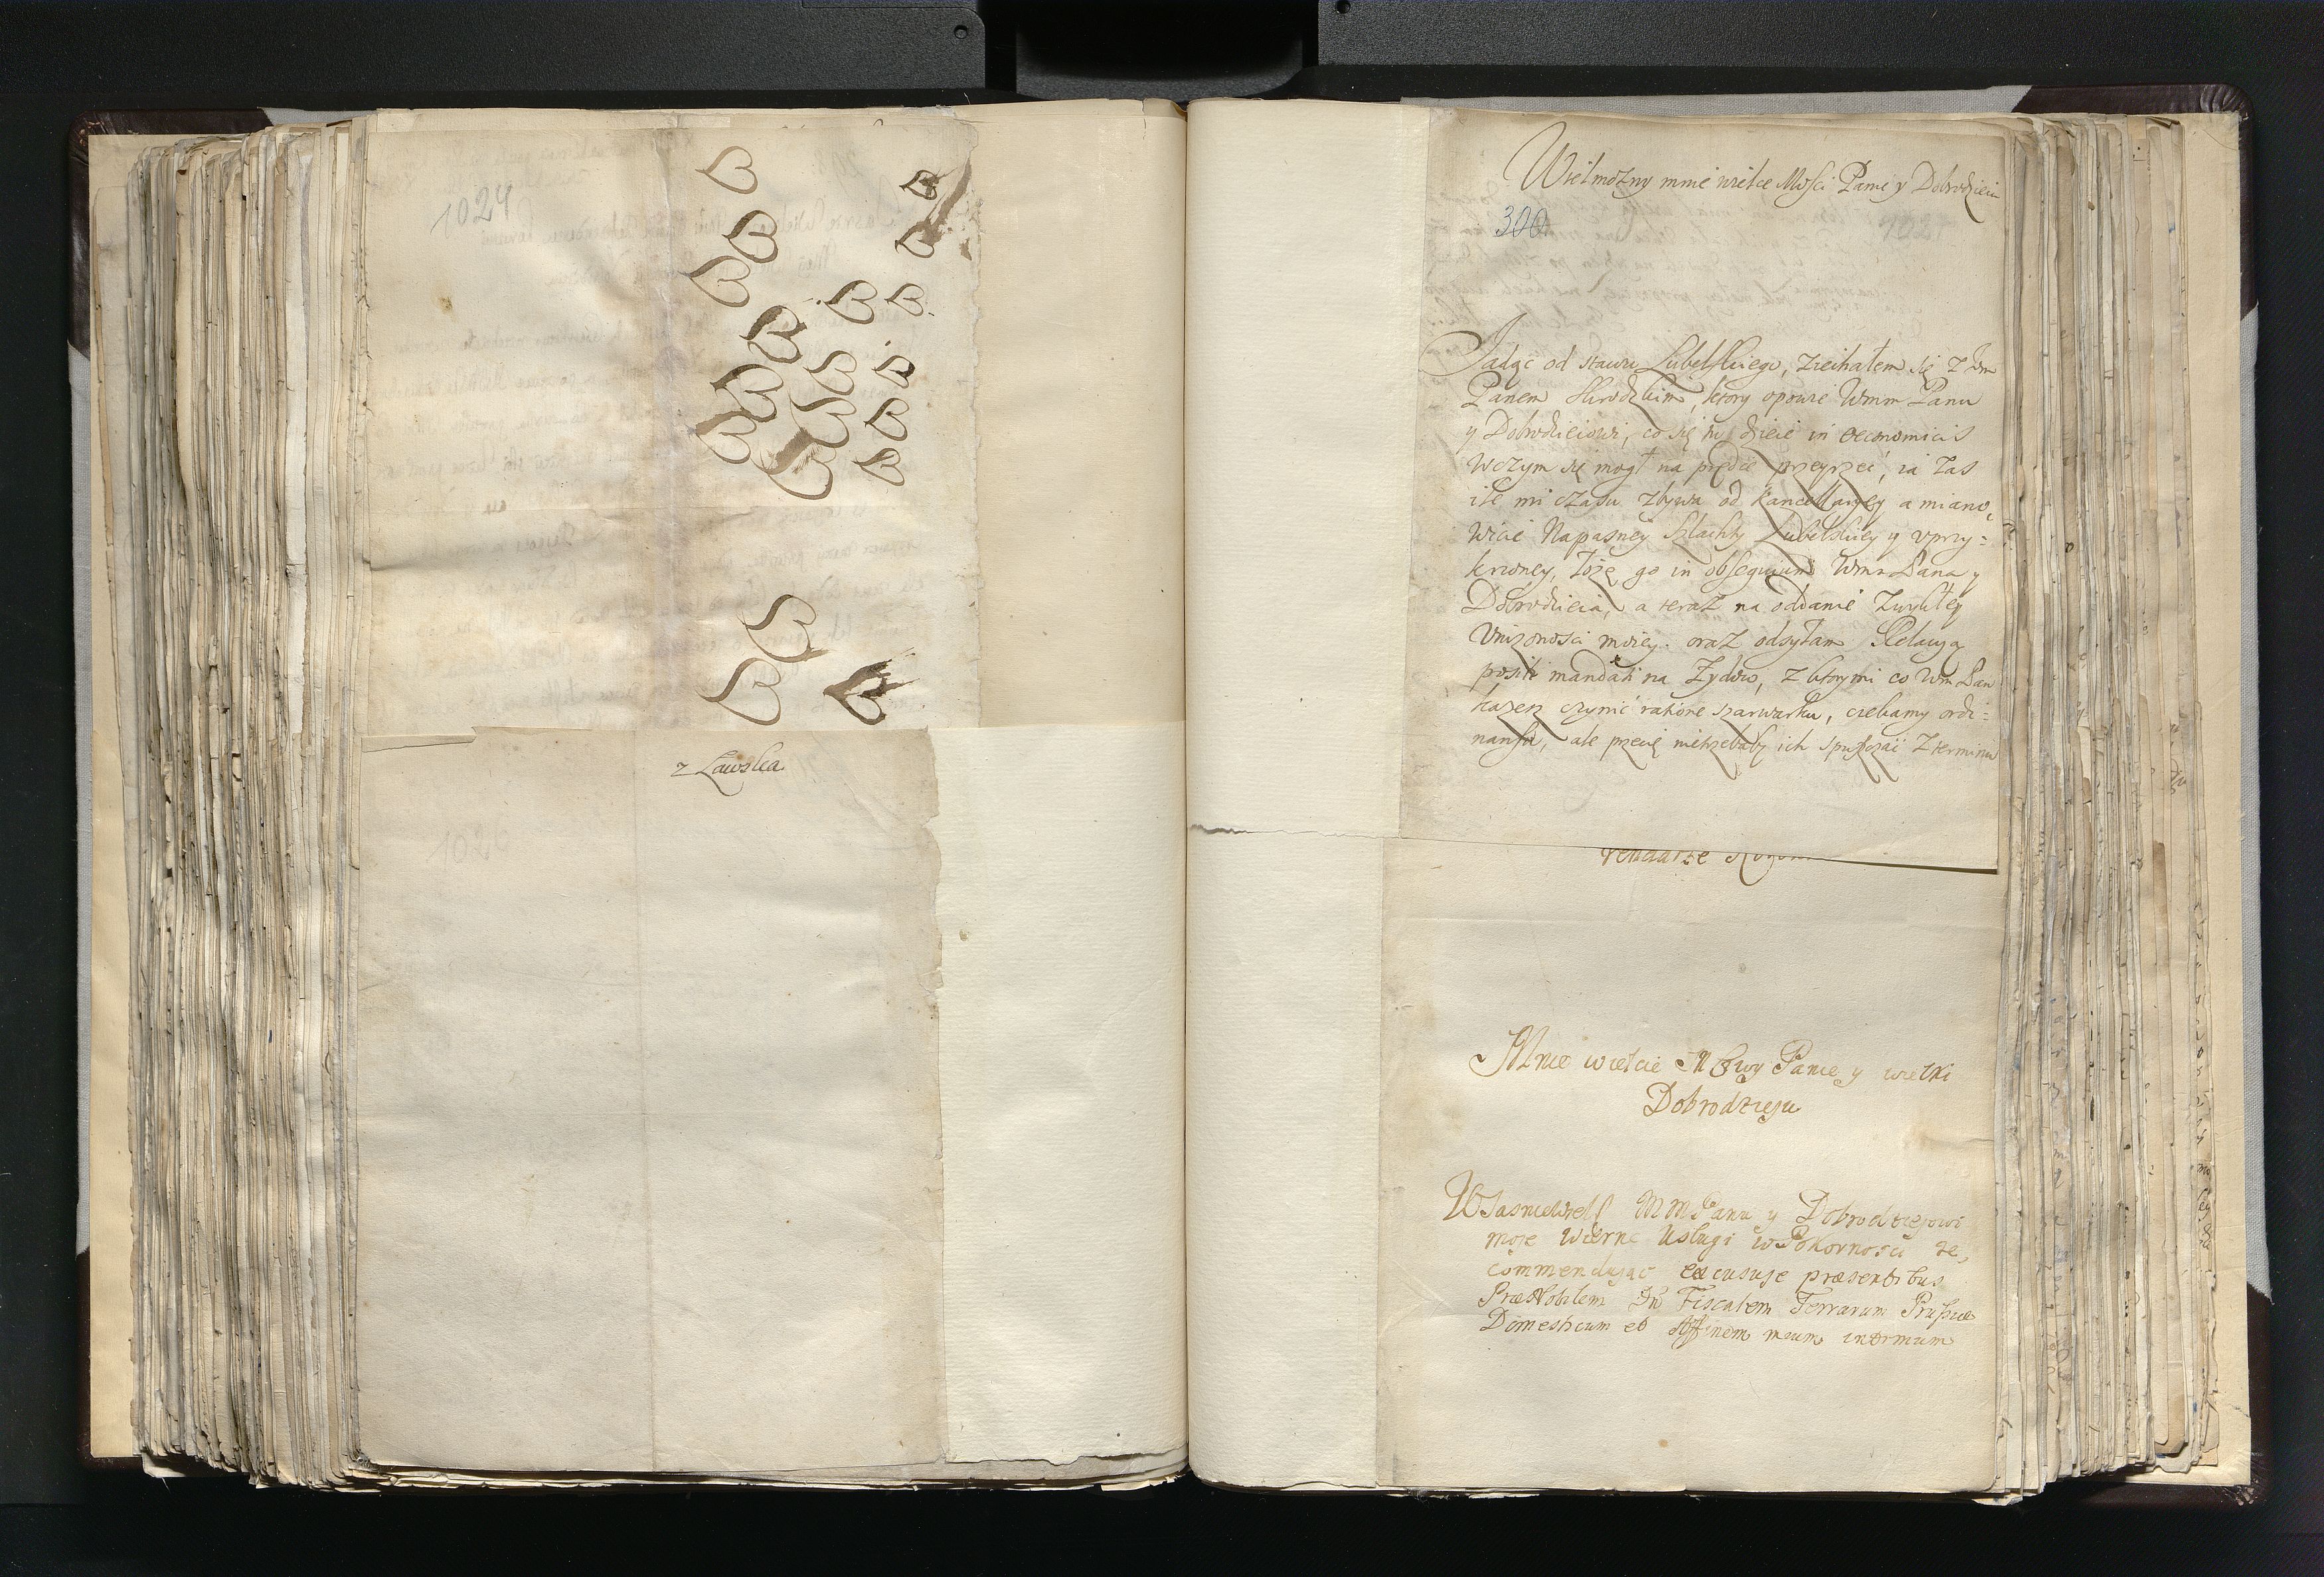 1024
z Lawska
Wielmożny mnie wielce Mości Panie y Dobrodzieiu
300
Jadąc od stawu Lubelskiego, ziechałem się z Jm
Panem, ktory opowie Wmm Panu
y Dobrodzieiowi, co się tu dzieie in oeconomicis
Wczym się mogł na prędce przeyrzeć, ia zas
ile mi czasu zbywa od Kancellaryey a miano,
wicie Napasney Szlachty Lubelskiey y vprzy=
krzoney, łożę go in obsequium Wmm Pana y
Dobrodzieia, a teraz na oddanie zwykłey
Vnizonosci moiey. oraz odsyłam Relacyą
positi mandati na Zydow, z ktorymi co Wm Pan
każesz czynić ratione szarwarku, czekamy ordi=
nansu, ale przecię nietrzebaby ich spuszczać z terminu
Mnie wielcie Mśwy Panie y wielki
Dobrodzieju
WJasnieWiel MMPanu y Dobrodziejowi
moje wierne Usługi w Pokornosci re,
commendując excusuje praesentibus
PraeNobilem Dn Fiscalem Terrarum Prussiae
Domesticum et Affinem meum intimum